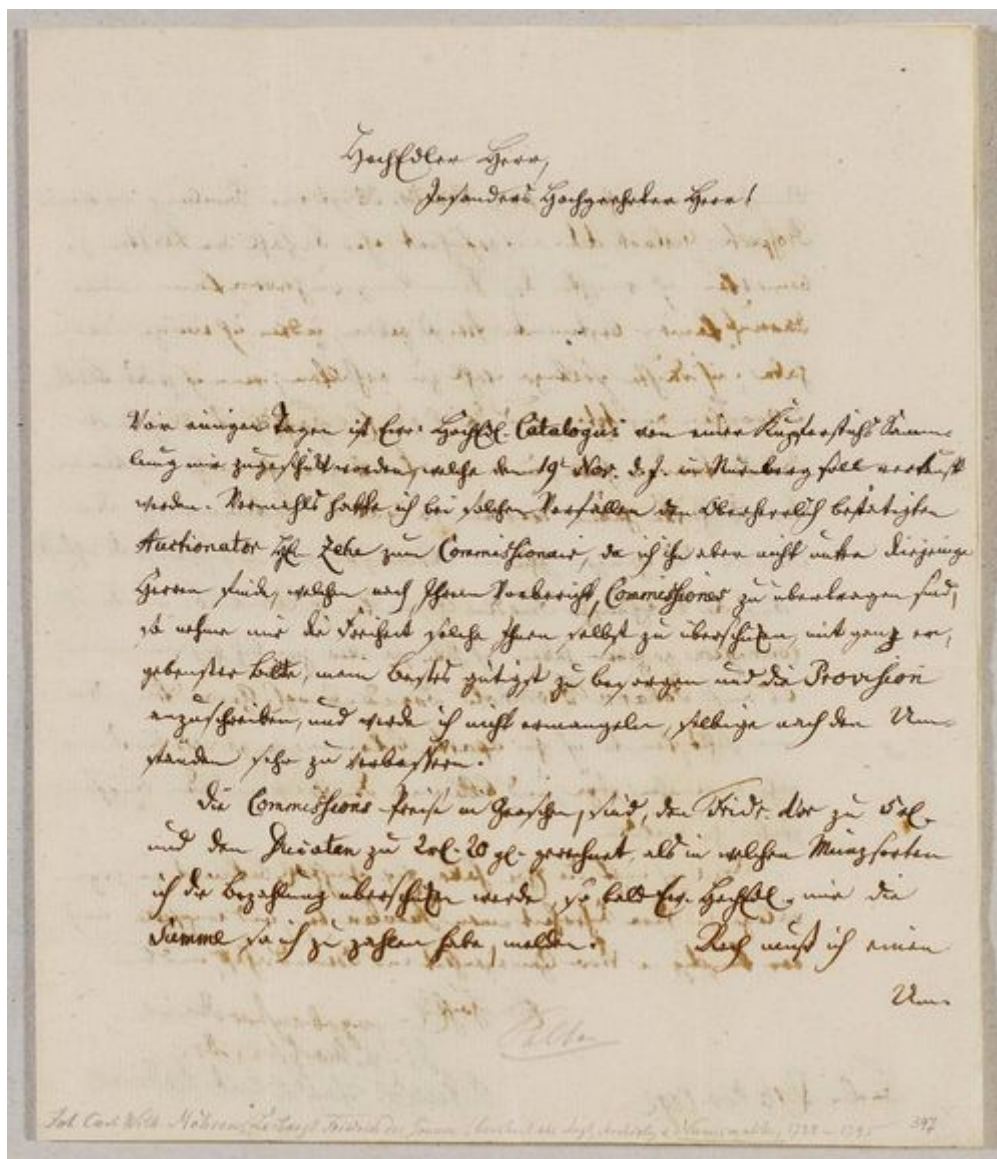 HochEdler Herr,
Insonders Hochgeehrter Herr!
Vor einigen Tagen ist Ewr. HochEdl. Catalogus von einer Kupferstichs Samm-
lung mir zugeschikt worden, welche den 19t Nov. d. J. in Nürnberg soll verkauft
werden. Vormahls hatte ich bei solchen Vorfällen den Oberherrlich bestätigten
Auctionator Zehe zum Commissionair, da ich ihn aber nicht unter diejenige
Herren finde, welchen nach Ihrem Vorbericht, Commissiones zu übertragen sind,
so nehme mir die Freiheit solche Ihnen selbst zu überschiken, mit ganz er-
gebenster Bitte, mein Bestes gütigst zu besorgen und die Provision
anzuschreiben, und werde ich nicht ermangeln, selbige nach den Um-
ständen sehr zu verbessern.
Die Commissions-Preise in Groschen, sind, den Fridr. d'or zu 5 rl.
und den Ducaten zu 2 rl. 20 gl. gerechnet, als in welchen Münzsorten
ich die Bezahlung überschiken werde, so bald Ew. HochEdl. mir die
Summe so ich zu zahlen habe, melden. Noch muß ich einen
Um-
Joh. Carl Wilh. Möhsen, Leibarzt Friedrich des Grossen